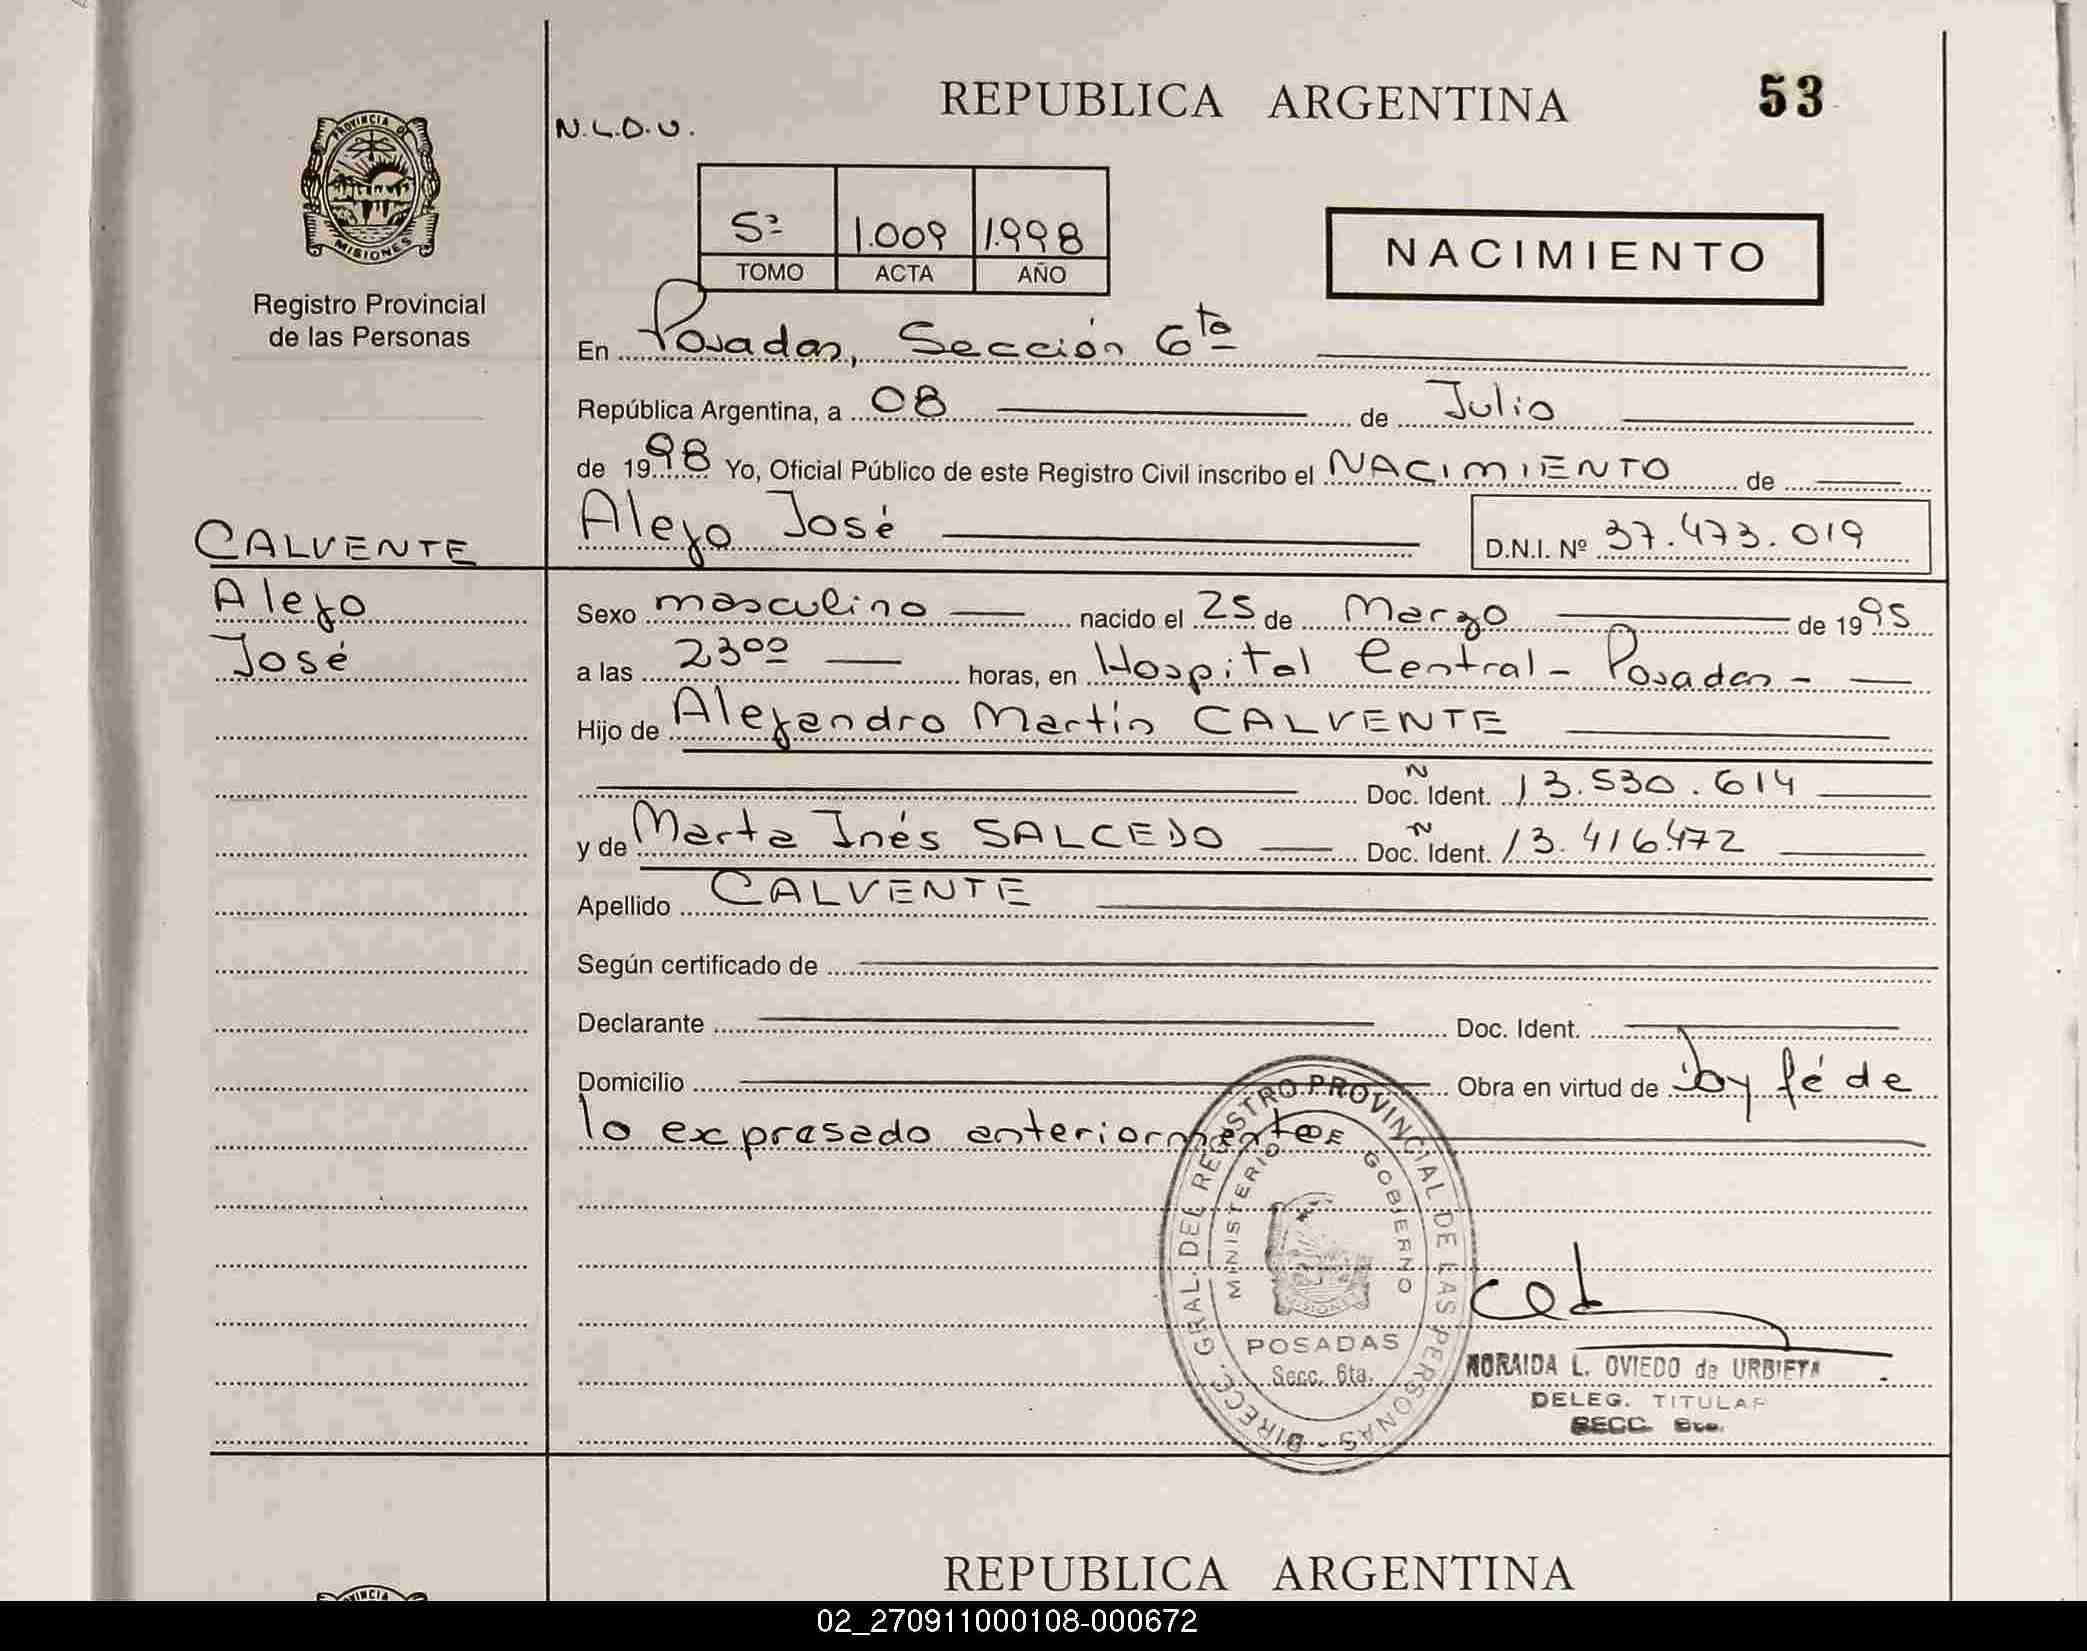 REPUBLICA ARGENTINA
53
N.L.D.U.
PROVINCIA DE
MISIONES
Registro Provincial
de las Personas
5º 1.009 1.998
TOMO ACTA AÑO
NACIMIENTO
En Posadas, Sección 6ta
República Argentina, a 08 de Julio
de 1998 Yo, Oficial Público de este Registro Civil inscribo el NACIMIENTO de
Alejo José
D.N.I. Nº 37.473.019
CALVENTE
Alejo
José
Sexo masculino nacido el 25 de Marzo de 1995
a las 23ºº horas, en Hospital Central - Posadas -
Hijo de Alejandro Martín CALVENTE
Doc. Ñ Ident. 13.530.614
y de Marta Inés SALCEDO Doc. Ñ Ident. 13.416.472
Apellido CALVENTE
Según certificado de
Declarante Doc. Ident.
Domicilio Obra en virtud de Doy fé de
lo expresado anteriormente
DIRECC. GRAL. DEL REGISTRO PROVINCIAL DE LAS PERSONAS -
MINISTERIO DE GOBIERNO
MISIONES
POSADAS
Secc. 6ta.
NORAIDA L. OVIEDO de URBIETA
DELEG. TITULAR
SECC. 6ta.
REPUBLICA ARGENTINA
02_270911000108-000672